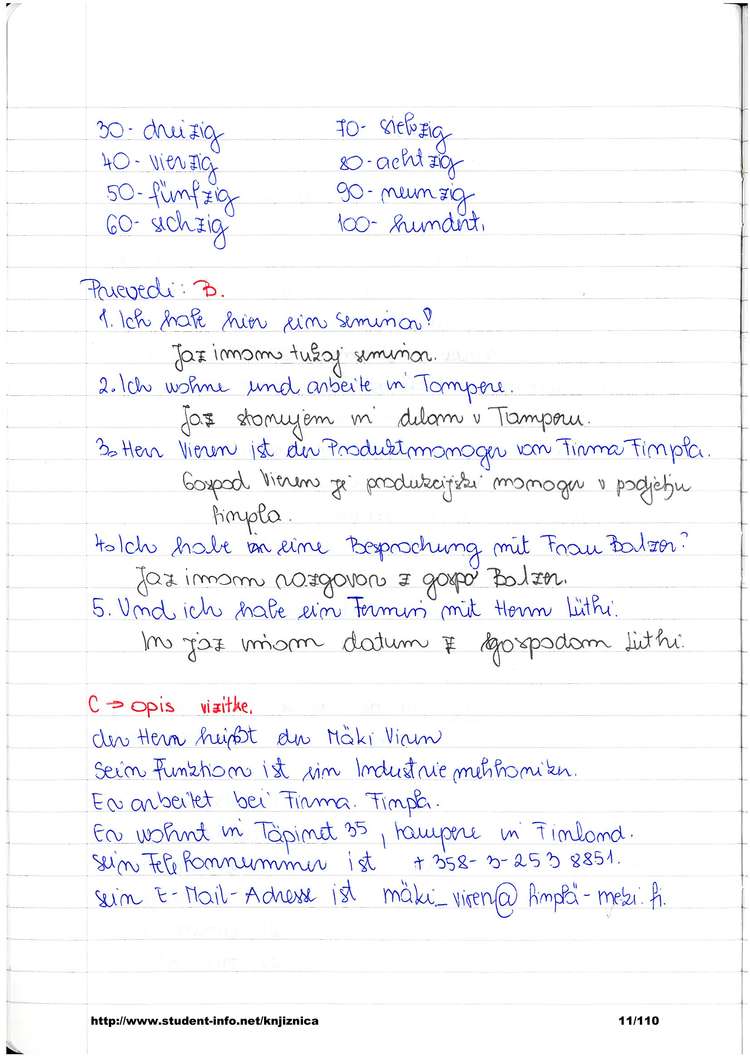 30 - dreizig
70 - siebzig
40 - vierzig
80 - achtzig
50 - fünfzig
90 - neunzig
60 - sechzig
100 - hundert.
Prevedi: B.
1. Ich habe hier ein seminar?
Jaz imam tukaj seminar.
2. Ich wohne und arbeite in Tampere.
Jaz stanujem in delam v Tamperu.
3. Herr Vieren ist der Produktmanager von Firma Fimpla.
Gospod Vieren je produkcijski manager v podjetju
Fimpla.
4. Ich habe eine Besprachung mit Frau Balzer?
Jaz imam razgovor z gospo Balzer.
5. Und ich habe ein Termin mit Herrn Lüthi.
In jaz imam datum z gospodom Lüthi.
C → opis vizitke.
der Herr heißt der Mäki Viren
Sein Funktion ist ein Industriemehhaniker.
Er arbeitet bei Firma. Fimpla.
Er wohnt in Täpinet 35, tampere in Finland.
Sein Telefonnummer ist +358-3-253 8851.
sein E-Mail-Adresse ist mäki_viren@fimplä-metzi.fi.
http://www.student-info.net/knjiznica
11/110